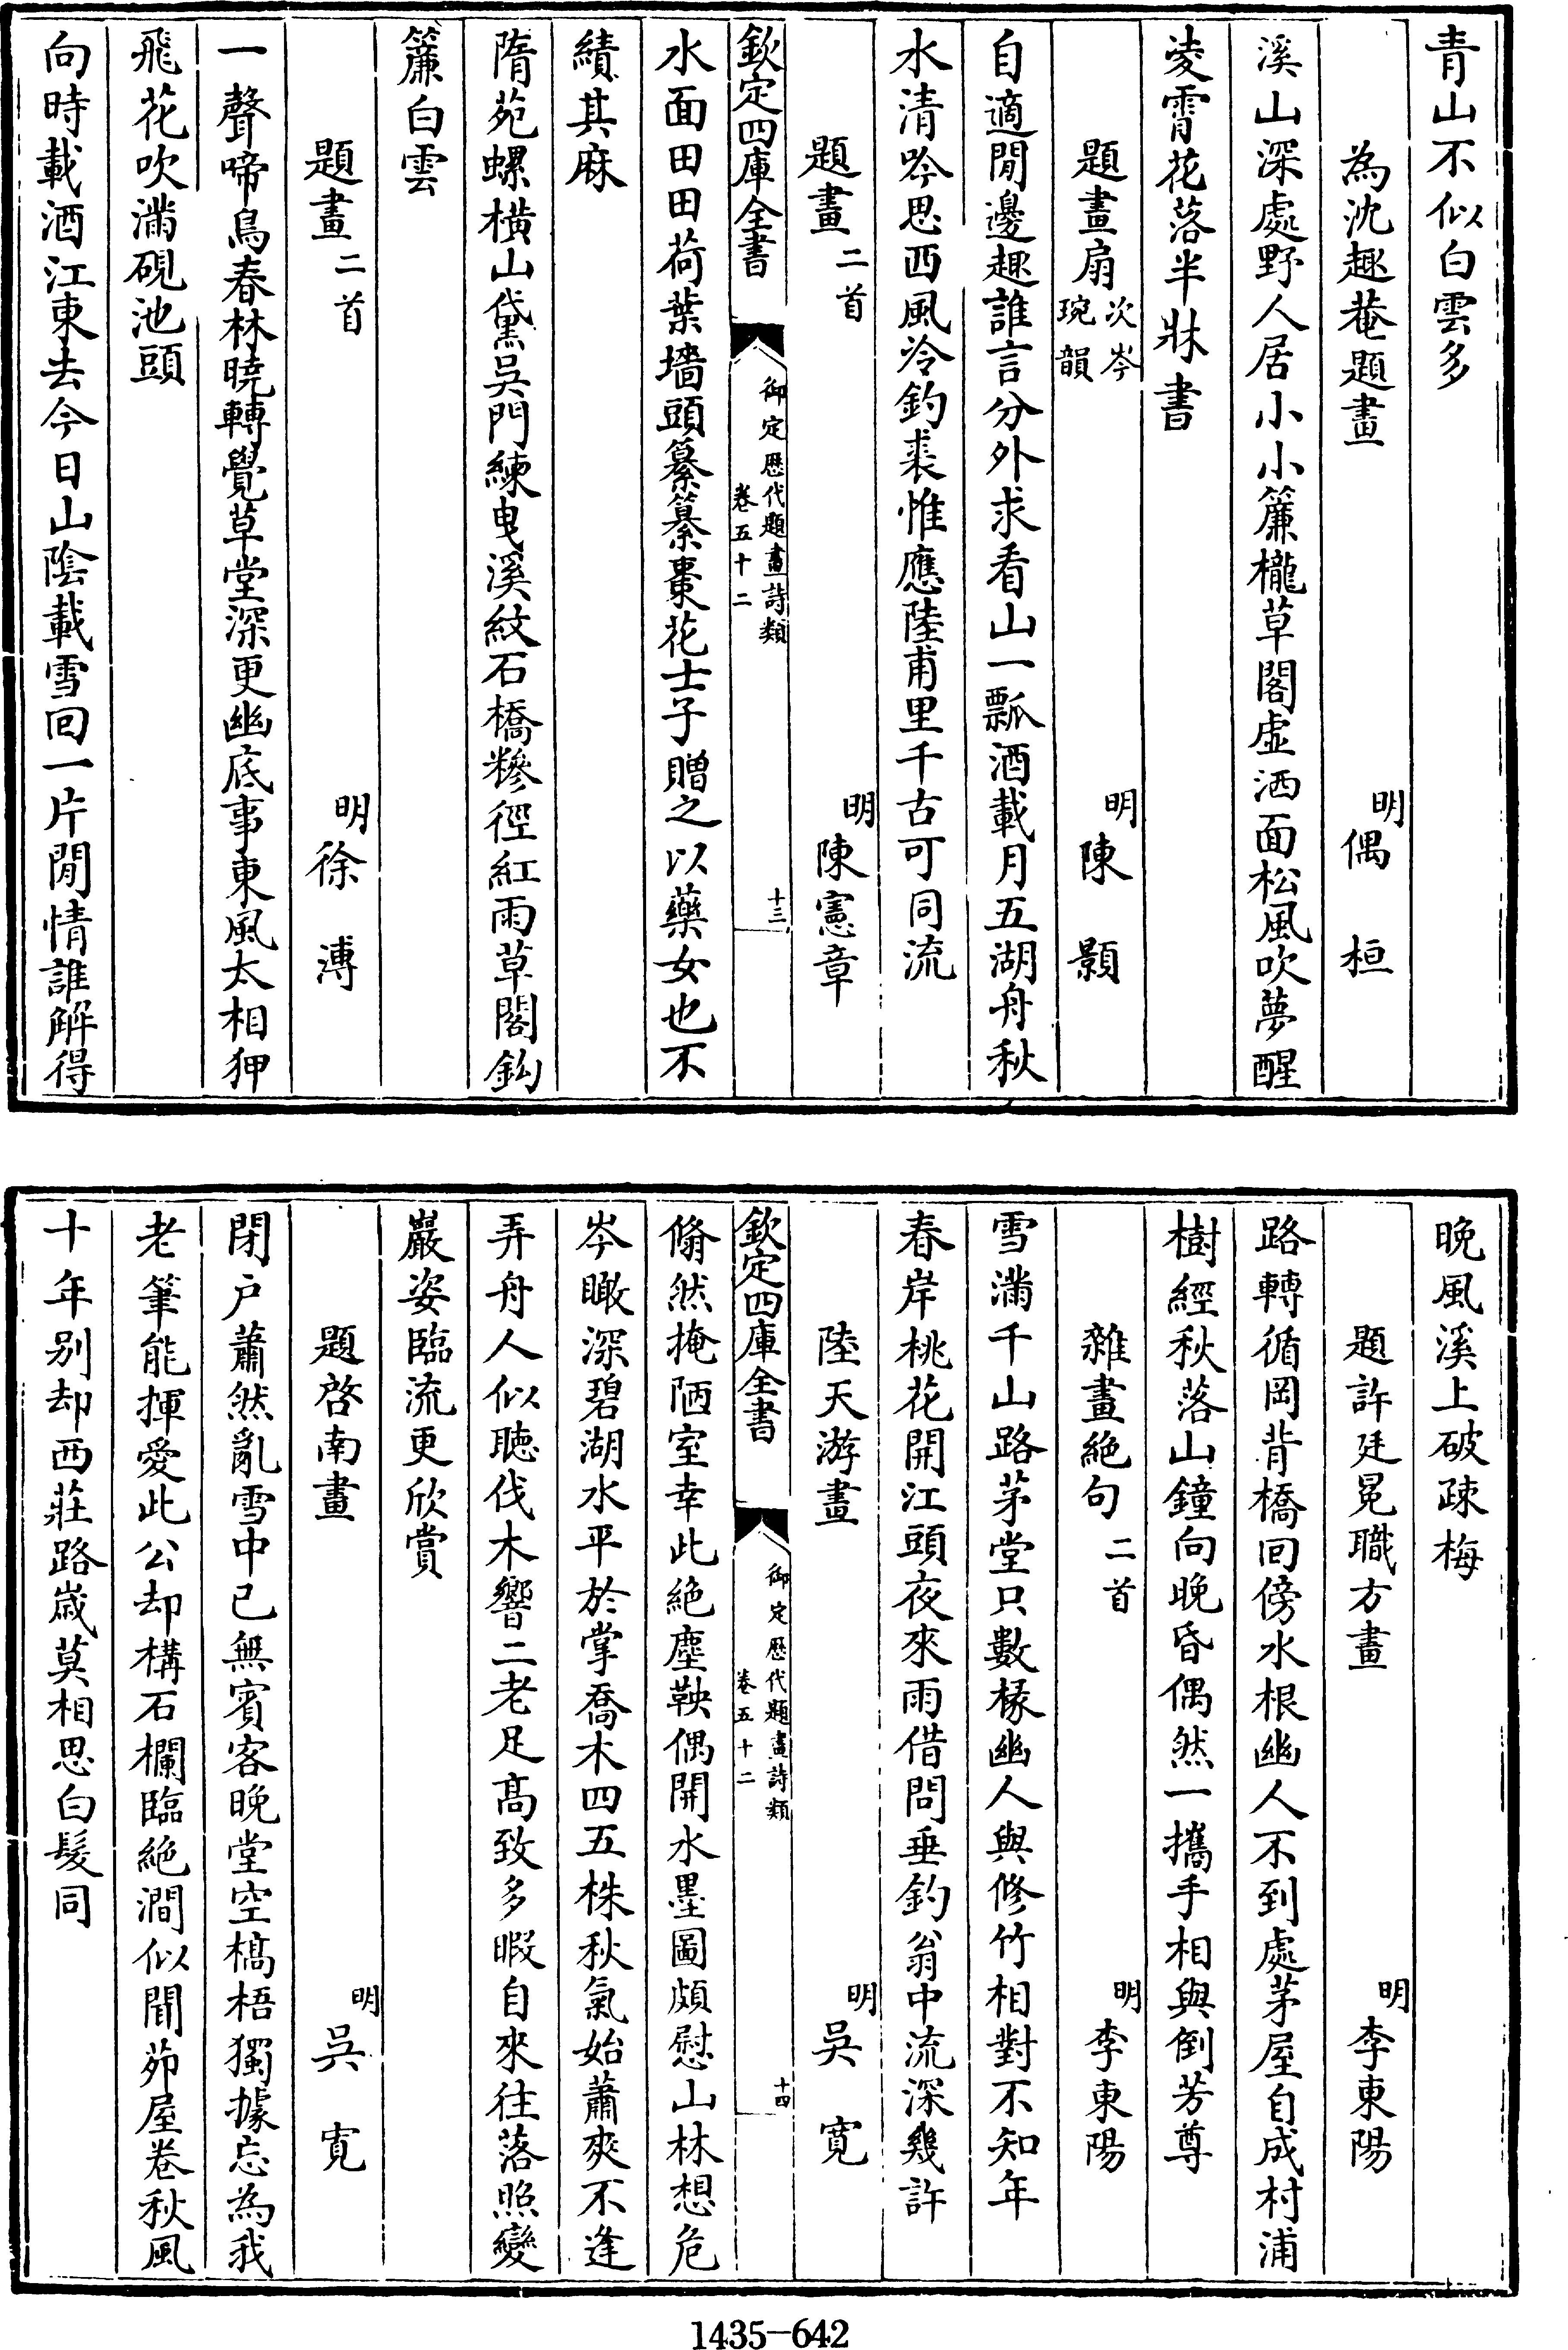 青山不似白雲多
為沈趣菴題畫　明偶桓
溪山深處野人居小小簾櫳草閣虛洒面松風吹夢醒
凌霄花落半牀書
題畫扇次岑琬韻　明陳顥
自適閒邊趣誰言分外求看山一瓢酒載月五湖舟秋
水清吟思西風冷釣裘惟應陸甫里千古可同流
題畫二首　明陳憲章
欽定四庫全書　御定歷代題畫詩類　卷五十二　十三
水面田田荷葉墻頭纂纂棗花士子贈之以藥女也不
績其麻
隋苑螺橫山黛吳門練曳溪紋石橋糝徑紅雨草閣鈎
簾白雲
題畫二首　明徐溥
一聲啼鳥春林曉轉覺草堂深更幽底事東風太相狎
飛花吹滿硯池頭
向時載酒江東去今日山陰載雪回一片閒情誰解得
晚風溪上破疎梅
題許廷冕職方畫　明李東陽
路轉循岡背橋回傍水根幽人不到處茅屋自成村浦
樹經秋落山鐘向晚昏偶然一攜手相與倒芳尊
雜畫絕句二首　明李東陽
雪滿千山路茅堂只數椽幽人與修竹相對不知年
春岸桃花開江頭夜來雨借問垂釣翁中流深幾許
陸天游畫　明吳寛
欽定四庫全書　御定歷代題畫詩類　卷五十二　十四
翛然掩陋室幸此絕塵鞅偶開水墨圖頗慰山林想危
岑瞰深碧湖水平於掌喬木四五株秋氣始蕭爽不逢
弄舟人似聽伐木響二老足高致多暇自來往落照變
巖姿臨流更欣賞
題啓南畫　明吳寛
閉戶蕭然亂雪中已無賓客晚堂空槁梧獨據忘為我
老筆能揮愛此公却構石欄臨絕澗似聞茆屋卷秋風
十年別却西莊路歲莫相思白髮同
1435-642